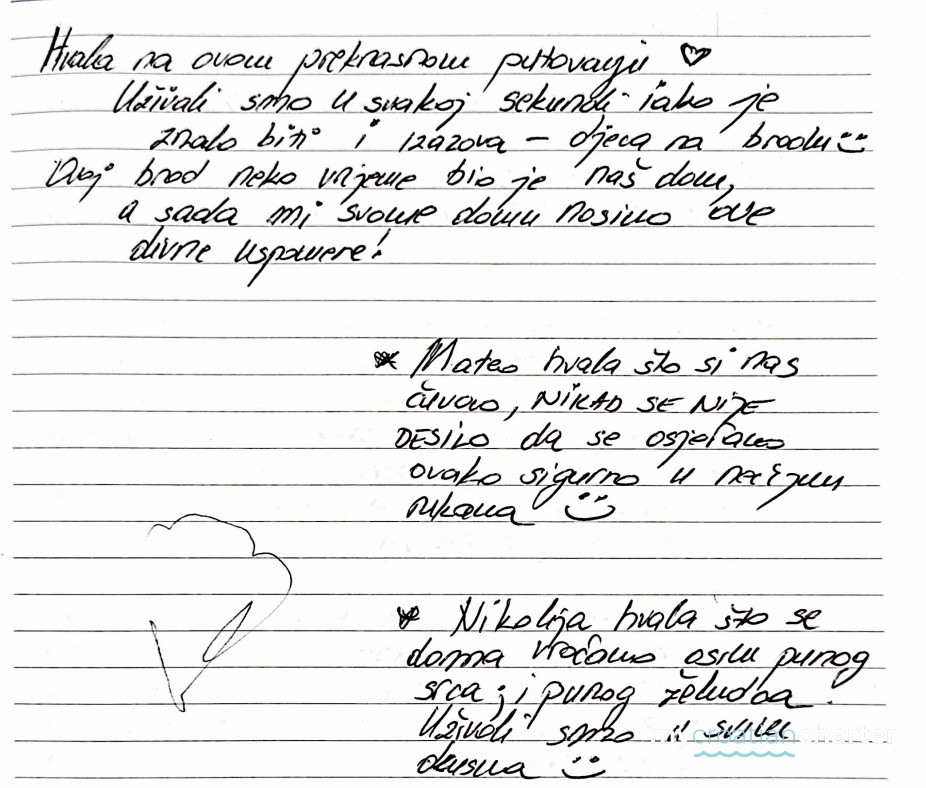 Hvala na ovom prekrasnom putovanju ♡
Uživali smo u svakoj sekundi iako je
znalo biti i izazova – djeca na brodu ☺
Ovaj brod neko vrijeme bio je naš dom,
a sada mi svome domu nosimo ove
divne uspomene!
* Mateo hvala što si nas
čuvao, NIKAD SE NIJE
DESILO da se osjećamo
ovako sigurno u nečijim
rukama ☺
* Nikolija hvala što se
doma vraćamo osim punog
srca i punog želudca.
Uživali smo u svim
okusima ☺
croatiancharter